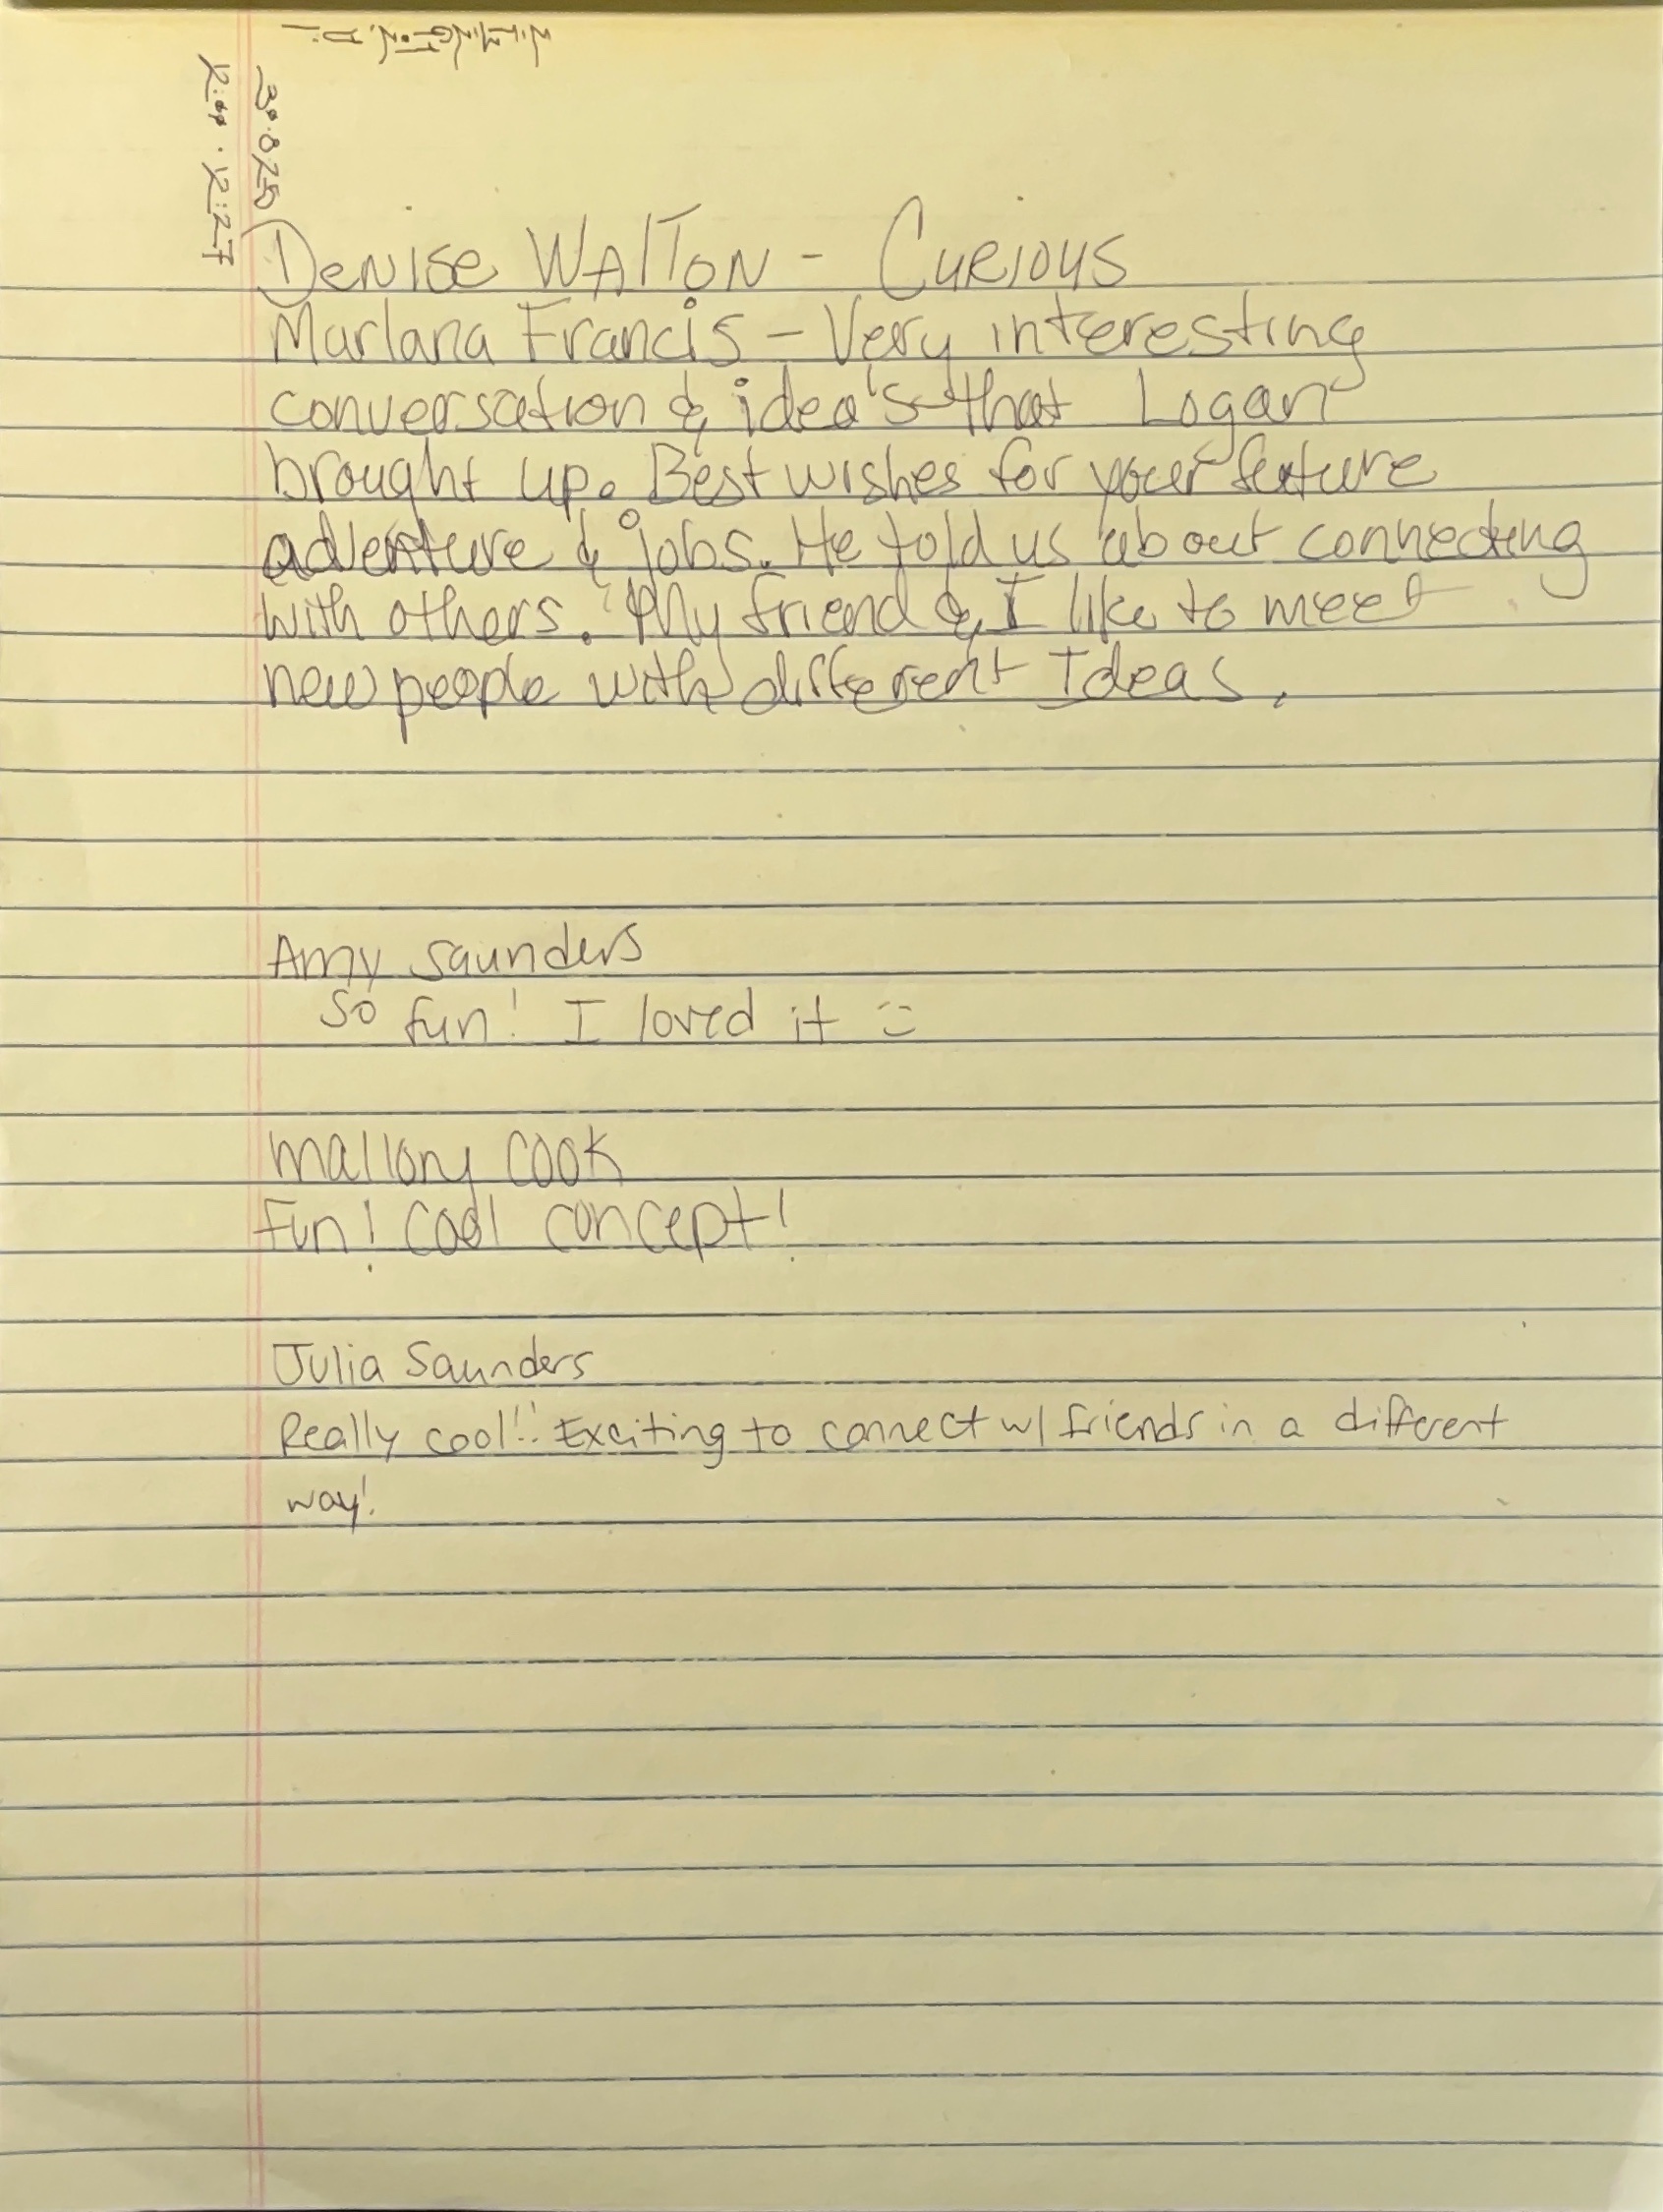 WILMINGTON, DE
12:27
Denise Walton - Curious
Marlana Francis - Very interesting
conversation & idea's that Logan
brought up. Best wishes for your future
adventure & jobs. He told us about connecting
with others. My friend & I like to meet
new people with different Ideas.
Amy Saunders
So fun! I loved it :)
mallory Cook
Fun! Cool concept!
Julia Saunders
Really cool!! Exciting to connect w/ friends in a different
way!